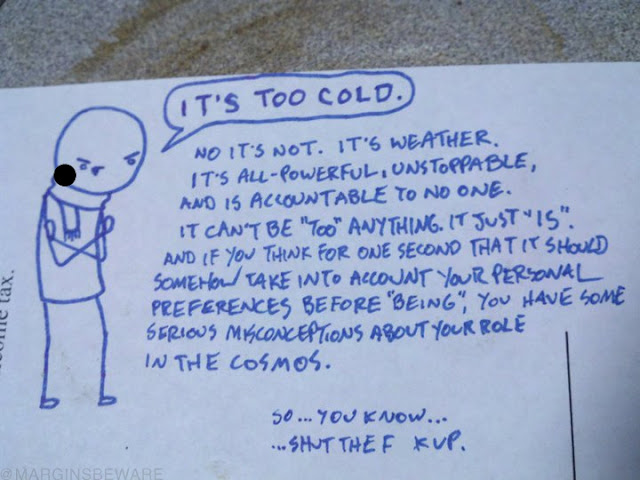 IT'S TOO COLD.
NO IT'S NOT. IT'S WEATHER.
IT'S ALL-POWERFUL, UNSTOPPABLE,
AND IS ACCOUNTABLE TO NO ONE.
IT CAN'T BE "TOO" ANYTHING. IT JUST "IS".
AND IF YOU THINK FOR ONE SECOND THAT IT SHOULD
SOMEHOW TAKE INTO ACCOUNT YOUR PERSONAL
PREFERENCES BEFORE "BEING", YOU HAVE SOME
SERIOUS MISCONCEPTIONS ABOUT YOUR ROLE
IN THE COSMOS.
SO... YOU KNOW...
...SHUT THE F K UP.
tax.
@MARGINSBEWARE